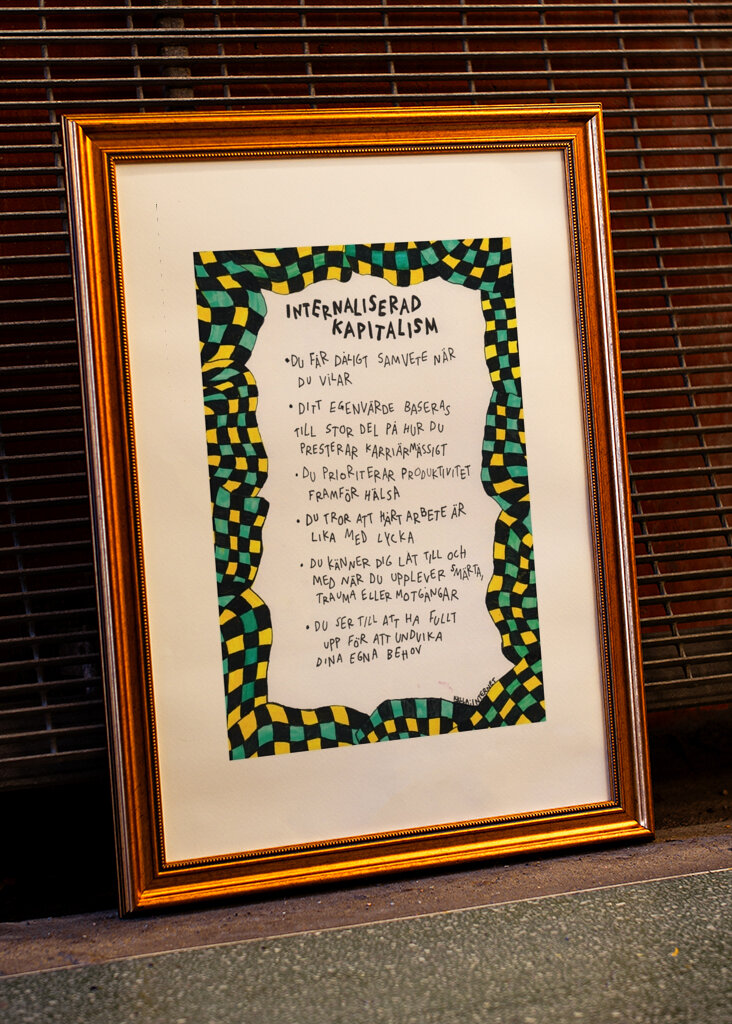 INTERNALISERAD
KAPITALISM
• DU FÅR DÅLIGT SAMVETE NÄR
DU VILAR
• DITT EGENVÄRDE BASERAS
TILL STOR DEL PÅ HUR DU
PRESTERAR KARRIÄRMÄSSIGT
• DU PRIORITERAR PRODUKTIVITET
FRAMFÖR HÄLSA
• DU TROR ATT HÅRT ARBETE ÄR
LIKA MED LYCKA
• DU KÄNNER DIG LAT TILL OCH
MED NÄR DU UPPLEVER SMÄRTA,
TRAUMA ELLER MOTGÅNGAR
• DU SER TILL ATT HA FULLT
UPP FÖR ATT UNDVIKA
DINA EGNA BEHOV